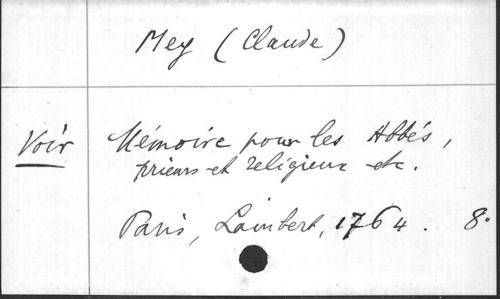 Mey (Claude)
Voir Mémoire pour les Abbés,
prieurs et religieux etc.
Paris, Lambert, 1764. 8°